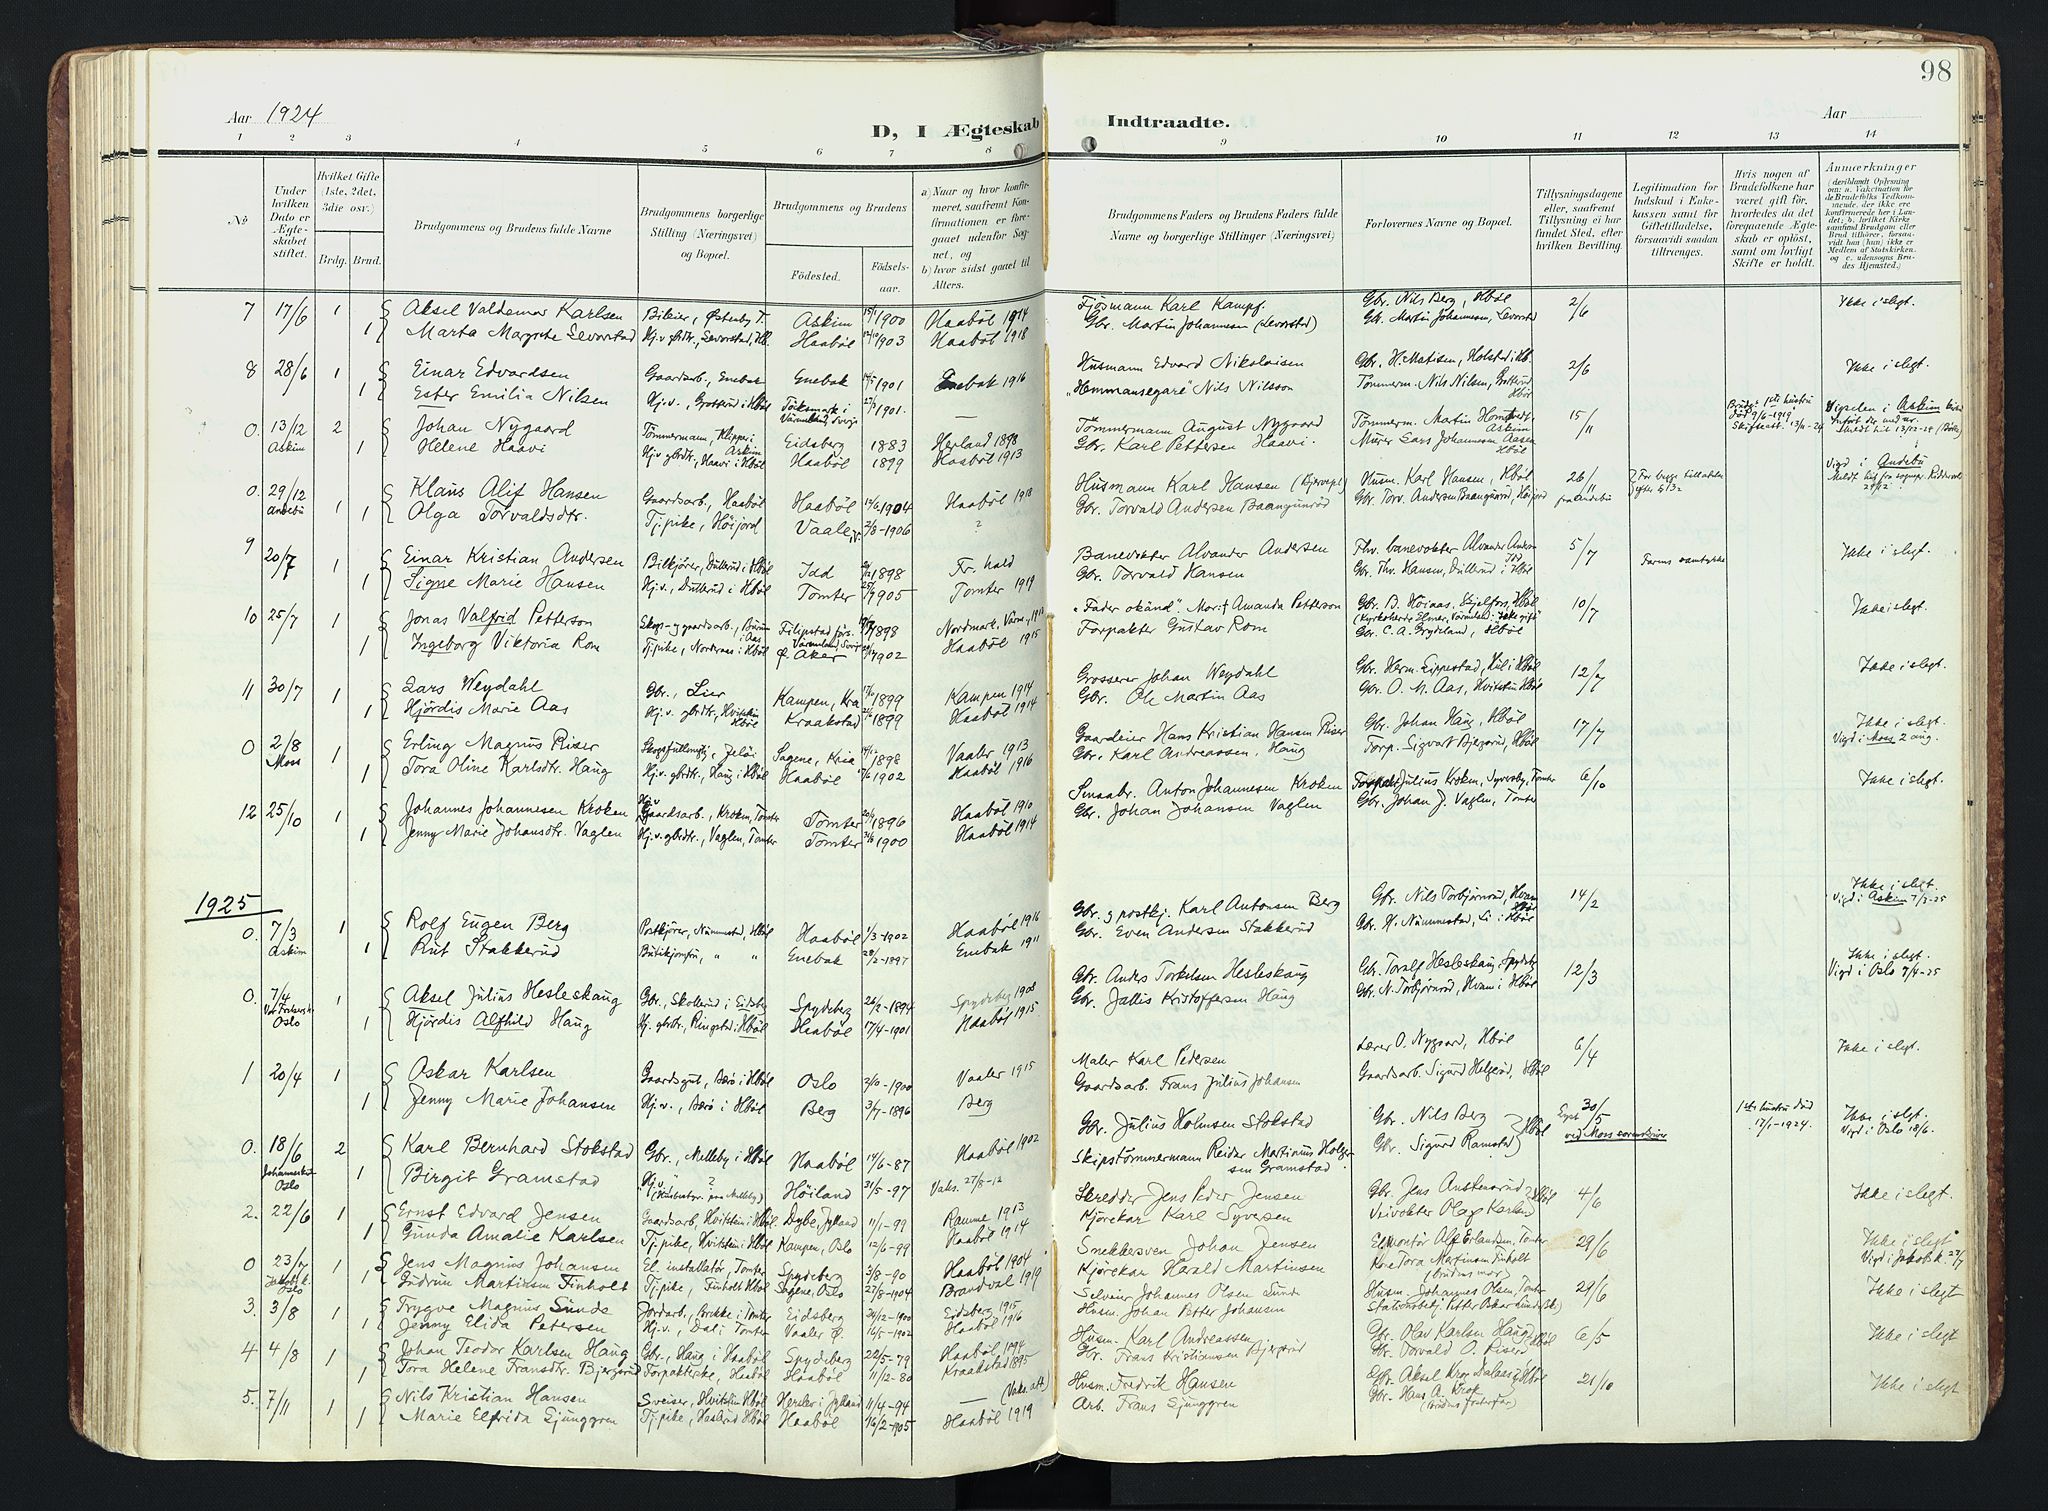 98
Aar 1924
D, I Ægteskab Indtraadte.
Aar
1 2 3 4 5 6 7 8 9 10 11 12 13 14
No
Under hvilken Dato er Ægteskabet stiftet.
Hvilket Gifte (1ste, 2det, 3die osv.)
Brdg. Brud.
Brudgommens og Brudens fulde Navne
Brudgommens borgerlige Stilling (Næringsvei) og Bopæl.
Brudgommens og Brudens
Födested. Födselsaar.
a) Naar og hvor konfirmeret, saafremt Konfirmationen er foregaaet udenfor Sognet, og
b) hvor sidst gaaet til Alters.
Brudgommens Faders og Brudens Faders fulde Navne og borgerlige Stillinger (Næringsvei)
Forlovernes Navne og Bopæl.
Tillysningsdagene eller, saafremt Tillysning ei har fundet Sted, efter hvilken Bevilling.
Legitimation for Indskud i Enkekassen samt for Giftetilladelse, forsaavidt saadan tiltrænges.
Hvis nogen af Brudefolkene har været gift för, hvorledes da det foregaaende Ægteskab er oplöst, samt om lovligt Skifte er holdt.
Anmærkninger
7 17/6 1 Aksel Valdemar Karlsen Bileier, Østenby T. Askim 1900 Haabøl 1914 Karl Kampf. Gbr. Nils Berg, Hbøl 2/6 Ikke i slegt.
1 Marta Margrete Levorstad Hj.v. gbrdtr., Levorstad, Hbl. Haabøl 1903 Haabøl 1918 Gbr. Martin Johannesen (Levorstad) Gbr. Martin Johannesen, Levorstad
8 28/6 1 Einar Edvardsen Gaardsarb., Enebak Enebak 1901 Enebak 1916 Husmann Edvard Nikolaisen Gbr. H. Matisen, Holstad i Hb. 2/6 Ikke i slegt.
1 Ester Emilia Nilsen Hj.v., Grotterud i Hbøl Töcksmark i Värmland, Sverige 1901. — "Hemmansegare" Nils Nilsson Tømmerm. Nils Nilsen, Grotterud Hbøl
0. 13/12 Askim 2 Johan Nygaard Tømmermann, Klipper i Askim Eidsberg 1883 Herland 1898 Tømmermann August Nygaard Tømmerm. Martin Askim 15/11 Vigselen i Askim
1 Helene Haavi Hj.v. gbrdtr., Haavi i Hbøl Haabøl 1899 Haabøl 1913 Gbr. Karl Pettersen Haavi. Murer Lars Johannesen Aasen Hbøl
0. 29/12 Andebu 1 Klaus Alif Hansen Gaardsarb., Haabøl Haabøl 12/6 1904 Haabøl 1918 Husmann Karl Hansen Husm. Karl Hansen, Hbøl 26/11 fra Andebu Vigd i Andebu
1 Olga Torvaldsdtr. Tj.pike, Höijord Vaale, 2/8-1906 ? Gbr. Torvald Andersen Baangunrød Gbr. Torv. Andersen Baangunrød, Höijord
9 20/7 1 Einar Kristian Andersen Bilkjører, Dullerud i Hbøl Idd 1898 Fr. hald Banevokter Alvander Andersen Fhv. banevokter Alvander Andersen Idd 5/7 Farens samtykke Ikke i slegt.
1 Signe Marie Hansen Hj.v., Dullerud i Hbøl Tomter 1905 Tomter 1919 Gbr. Torvald Hansen Gbr. Thv. Hansen, Dullerud i Hbøl
10 25/7 1 Jonas Valfrid Petterson Skogs- og gaardsarb., i Aas Filipstad förs. Värmland, Sverige 1898 Nordmark, Värm. "Fader okänd". Mor: Amanda Petterson Gbr. B. Hoiaas, Kjelfos, Hbøl 10/7 Ikke i slegt.
1 Ingeborg Viktoria Rom Tj.pike, Nordraas i Hbøl Ø. Aker 1902 Haabøl 1915 Forpakter Gustav Rom Gbr. C. A. Grydeland, Hbøl
11 30/7 1 Lars Weydahl Gbr., Lier Kampen, Kra 1899 Kampen 1914 Grosserer Johan Weydahl Gbr. Herm. Sippestad, Hul i Hbøl 12/7 Ikke i slegt.
1 Hjördis Marie Aas Hj.v. gbrdtr., Hvitstein Hbøl Kraakstad 1899 Haabøl 1914 Gbr. Ole Martin Aas Gbr. O. M. Aas, Hvitstein Hbøl
0 2/8 Moss 1 Erling Magnus Riser Skogsfullm., Jeløi Sagene, Kria 1898 Vaaler 1913 Gaardeier Hans Kristian Hansen Riser Gbr. Johan Haug, Hbøl 17/7 Ikke i slegt. Vigd i Moss 2 aug.
1 Tora Oline Karlsdtr. Haug Hj.v. gbrdtr., Haug i Hbøl Haabøl 1902 Haabøl 1916 Gbr. Karl Andreassen, Haug Forp. Sigvart Bjerzerud, Hbøl
12 25/10 1 Johannes Johannesen Kroken Gaardsarb., Kroken, Tomter Tomter 1896 Haabøl 1910 Smaabr. Anton Johannesen Kroken Forpakt. Julius Kroken, Syversby, Tomter 6/10 Ikke i slegt.
1 Jenny Marie Johansdtr. Vaglen Hj.v. gbrdtr., Vaglen, Tomter Tomter 1900 Haabøl 1914 Gbr. Johan Johansen Vaglen Gbr. Johan J. Vaglen, Tomter
1925
0. 7/3 Askim 1 Rolf Eugen Berg Postkjører, Nummestad, Hbøl Haabøl 1/3-1902 Haabøl 1916 Gbr. og postkj. Karl Antonsen Berg Gbr. Nils Torbjørnrud, Hvam Hbøl 14/2 Ikke i slegt. Vigd i Askim 7/3-25
1 Rut Stakkerud Butikjomfru, " " Enebak 28/2-1897 Enebak 1911 Gbr. Even Andersen Stakkerud Gbr. H. Nummestad, Li i Hbøl
0. 7/4 Oslo 1 Aksel Julius Hesleskaug Gbr., Skollerud i Eidsby Spydeberg 26/2-1894 Spydeberg 1908 Gbr. Anders Torkelsen Hesleskaug Gbr. Toralf Hesleskaug, Spydeby 12/3 Ikke i slegt. Vigd i Oslo 7/4-25
1 Hjördis Alfhild Haug Hj. gbrdtr., Ringstad i Hbøl Haabøl 17/4-1901 Haabøl 1915. Gbr. Jallis Kristoffersen Haug Gbr. N. Torbjørnrud, Hvam i Hbøl
1 20/4 1 Oskar Karlsen Gaardsgut, Bærø i Hbøl Oslo 2/10-1900 Vaaler 1915 Maler Karl Pedersen Lærer O. Nygaard, Hbøl 6/4 Ikke i slegt.
1 Jenny Marie Johansen Hj.v., Bærø i Hbøl Berg 3/7-1896 Berg Gaardsarb. Frans Julius Johansen Gaardsarb. Sigurd Helgerød, Hbøl
0. 18/6 Johanneskirken Oslo 2 Karl Bernhard Stokstad Gbr., Melleby i Hbøl Haabøl 14/6-87 Haabøl 1902 Gbr. Julius Holmsen Stokstad Gbr. Nils Berg } Hbøl 30/5 ved Moss sorenskriver 1ste hustru död 17/1-1924. Ikke i slegt. Vigd i Oslo 18/6.
1 Birgit Gramstad Hj.v. ? Höiland 31/5-97 Vaks. 27/8-12 Skipstömmermann Reider Martinius Holgersen Gramstad Gbr. Sigurd Ramstad
2. 22/6 1 Ernst Edvard Jensen Gaardsarb., Hvitstein i Hbøl Dybe, Jylland 11/1-99 Ramme 1913 Skredder Jens Peder Jensen Gbr. Jens Austenrud } Hbøl 4/6 Ikke i slegt.
1 Gunda Amalie Karlsen Tj.pike, Hvitstein i Hbøl Kampen, Oslo 12/6-99 Haabøl 1914 Kjørekar Karl Syversen Veivokter Olaf Karlsen
0 23/7 Jakobsk. Oslo 1 Jens Magnus Johansen El. installatør, Tomter Spydeberg 3/8-90 Haabøl 1904 Snekkersven Johan Jensen El. montör Alf Erlandsen, Tomter 29/6 Ikke i slegt Vigd i Jakobsk. 23/7
1 Gudrun Martinsen Finholt Tj.pike, Finholt Hbøl Sagene, Oslo 27/8-1904 Brandval 1919 Kjørekar Harald Martinsen Kone Tora Martinsen Finholt (Brudens mor)
3. 3/8 1 Trygve Magnus Sunde Jordarb., Brekke i Tomter Eidsberg 24/12-1900 Eidsberg 1915 Selveier Johannes Olsen Sunde Husm. Johannes Olsen, Tomter 29/6 Ikke i slegt
1 Jenny Elida Petersen Hj.v., Dal i Tomter Vaaler Ø. 16/5-1902 Haabøl 1916 Husm. Johan Petter Johansen Stationsbetj. Petter Oskar
4 4/8 1 Johan Teodor Karlsen Haug Gbr., Haug i Haabøl Spydeberg 22/5-79 Haabøl 1894 Husm. Karl Andreassen Gbr. Olav Karlsen Haug } Hbøl 6/5 Ikke i slegt
1 Tora Helene Fransdtr. Bjerzerud Forpakterske, Haabøl Haabøl 11/12-80 Kraakstad 1895 Gbr. Frans Kristiansen Bjerzerud Gbr. Torvald O. Riserud
5. 7/11 1 Nils Kristian Hansen Sveiser, Hvitstein Hbøl Jylland 11/4-94 — (Vaks. att.) Husm. Fredrik Hansen Gbr. Aksel Krog } Hbøl 21/10 Ikke i slegt
1 Marie Elfrida Ljunggren Tj.pike, Haslerud Hbøl Haabøl 16/2-1905 Haabøl 1919 Arb. Frans Ljunggren Gbr. Hans A. Krok (Brudens fosterfar)